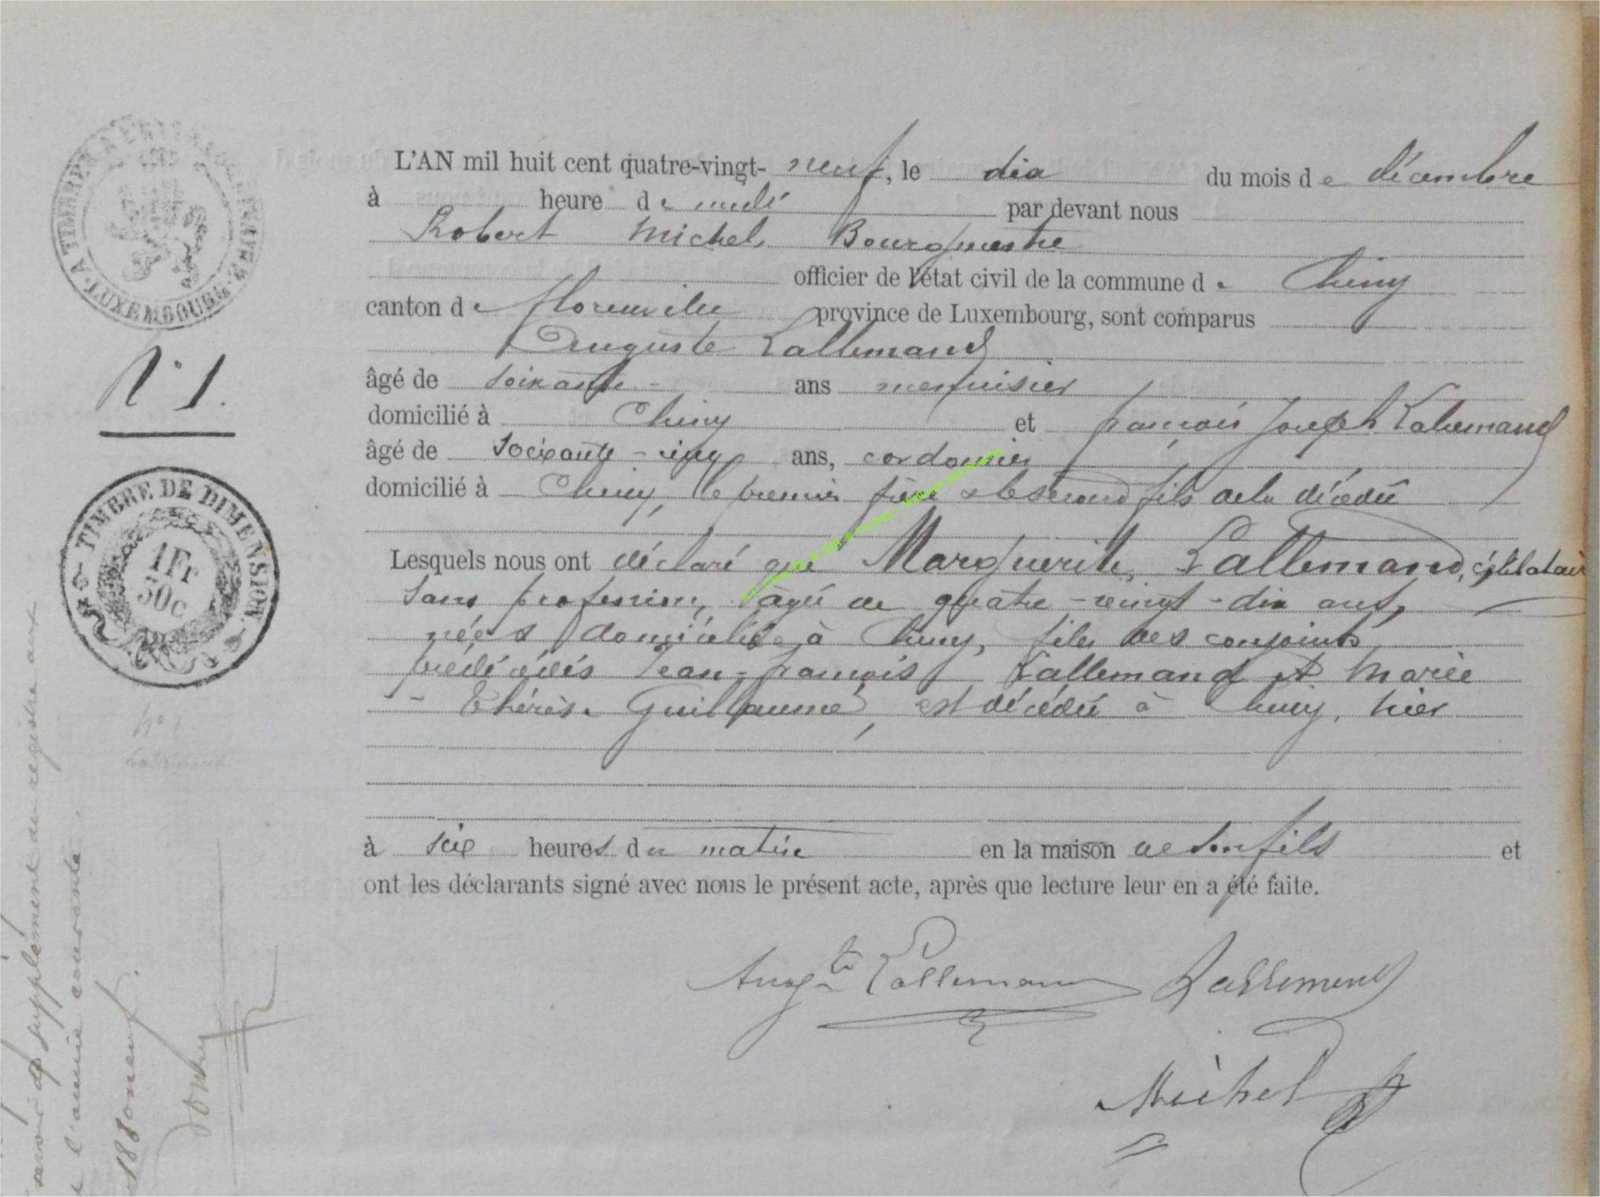 L'AN mil huit cent quatre-vingt- neuf, le dix du mois de décembre
à heure de midi par devant nous
Robert Michel Bourgmestre
officier de l'état civil de la commune de Chiny
canton de florenville province de Luxembourg, sont comparus
Auguste Lallemand
âgé de soixante ans menuisier
domicilié à Chiny et françois Joseph Lallemand
âgé de soixante ans, cordonnier
domicilié à Chiny, le premier frère & le second fils de la décédée
Lesquels nous ont déclaré que Marguerite Lallemand, célibataire
sans profession, âgée de quatre-vingt-dix ans,
née & domiciliée à Chiny, fille des conjoints
prédécédés Jean-françois Lallemand et Marie
- Thérèse Guillaume, est décédée à Chiny, hier
à six heures du matin en la maison de son fils et
ont les déclarants signé avec nous le présent acte, après que lecture leur en a été faite.
Augte Lallemand Lallemand
Michel
A TIMBRE EXTRAORDINAIRE
LUXEMBOURG
N° 1.
TIMBRE DE DIMENSION.
1Fr
50c
N° 1
Lallemand
de supplément au registre aux
l'année courante.